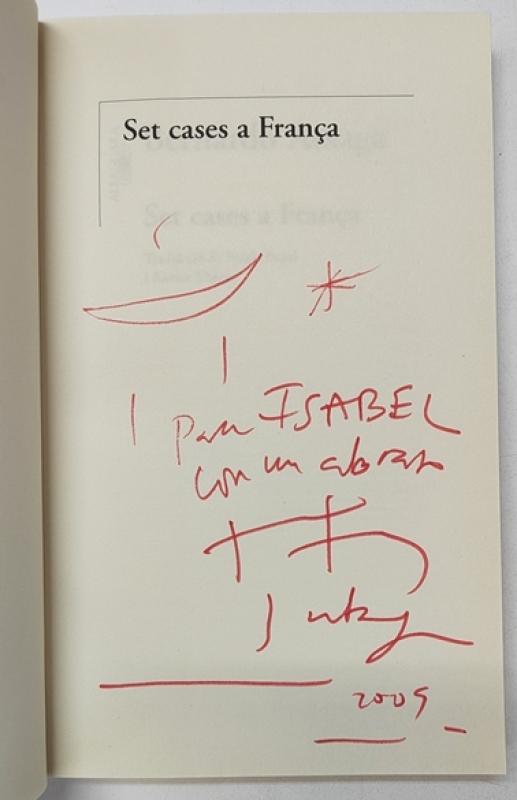 Set cases a França
Para ISABEL
con un abrazo
2009